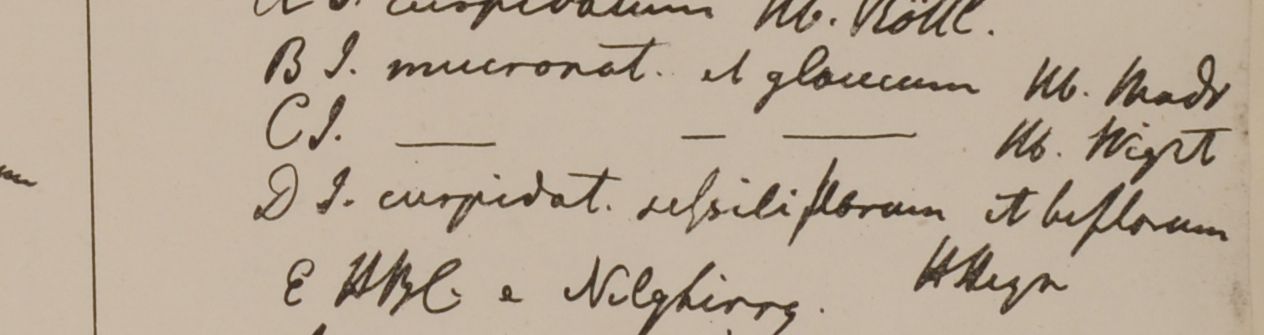 A J. cuspidatum Hb. Röttl.
B J. mucronat. et glaucum Hb. Madr
C J. — — — Hb. Wight
D J. cuspidat. sessiliflorum et biflorum
E HBC. e Nilghirry. HHeyn